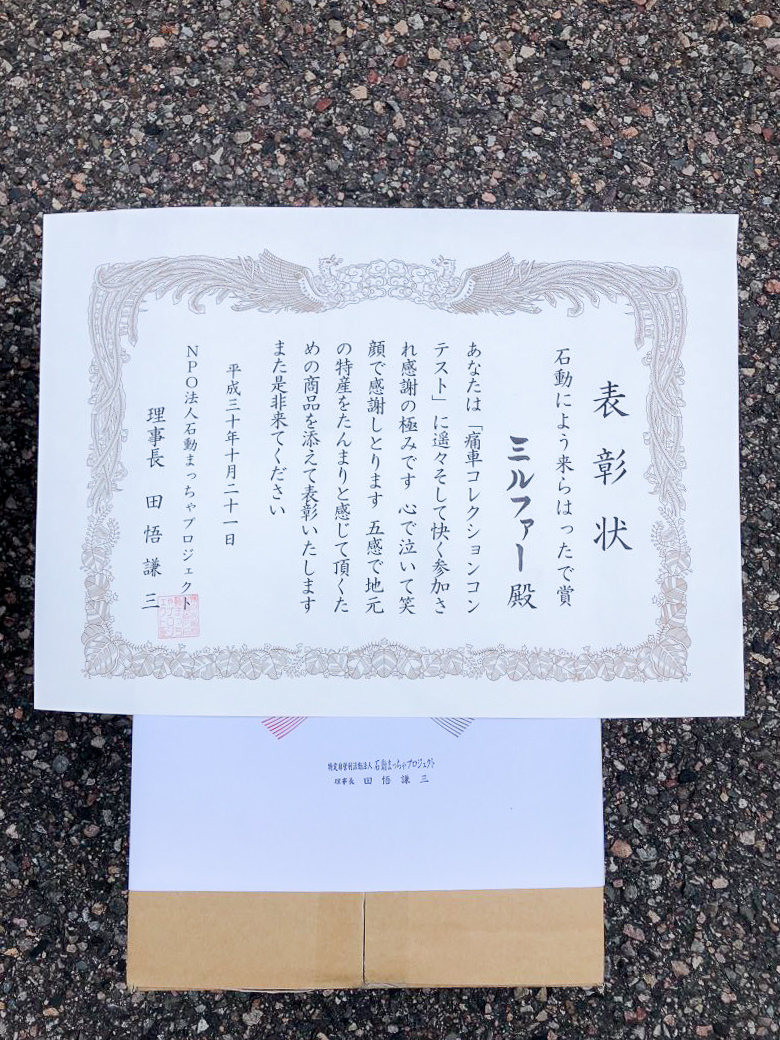 表彰状
石動によう来らはったで賞
ミルファー殿
あなたは「痛車コレクションコン
テスト」に遥々そして快く参加さ
れ感謝の極みです 心で泣いて笑
顔で感謝しとります 五感で地元
の特産をたんまりと感じて頂くた
めの商品を添えて表彰いたします
また是非来てください
平成三十年十月二十一日
NPO法人石動まっちゃプロジェクト
理事長 田悟謙三
特定非営利活動法人 石動まっちゃプロジェクト
理事長 田悟謙三